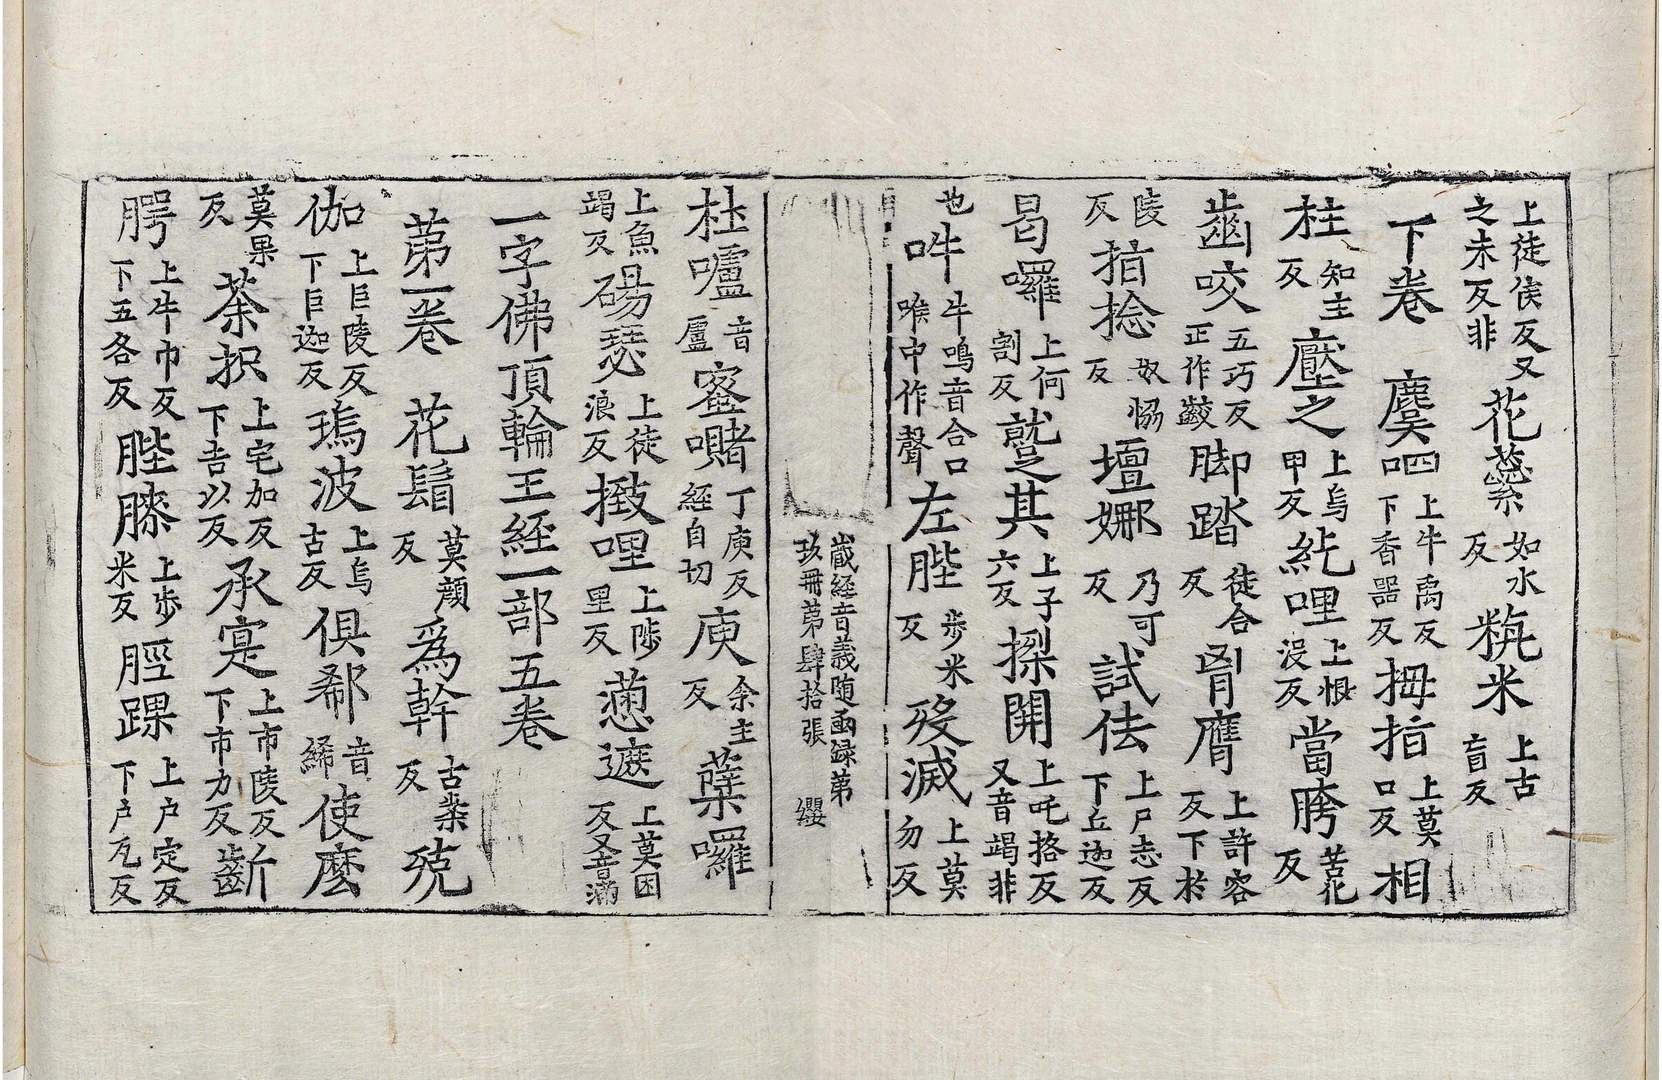 上徒侯反又之未反非花蘂如水反粇米上古盲反
下卷 麌呬上牛禹反下香器反拇指上莫口反相
柱知主反壓之上烏甲反紇哩上恨没反當胯苦花反
齒咬五巧反正作齩脚踏徒合反胷膺上許容反下於
陵反指捻奴恊反壇娜乃可反試佉上尸志反下丘迦反
曷囉上何割反蹵其上子六反搩開上吒挌反又音竭非
也吽牛鳴音合口喉中作聲左䏶步米反歿滅上莫勿反
藏經音義随函録第玖冊第肆拾張 纓
杜嚧音盧蜜㗋丁庾反經自切庾余主反蘗囉
上魚竭反碭瑟上徒浪反撒哩上陟里反懣遮上莫困反又音滿
一字佛頂輪王經一部五卷
苐一卷 花鬘莫顔反爲幹古案反㲉
伽上巨陵反下巨迦反瑦波上烏古反俱郗音絺使麽
莫果反荼抧上宅加反下吉以反承寔上市陵反下市力反齗
腭上牛巾反下五各反䏶膝上步米反脛踝上户定反下户瓦反